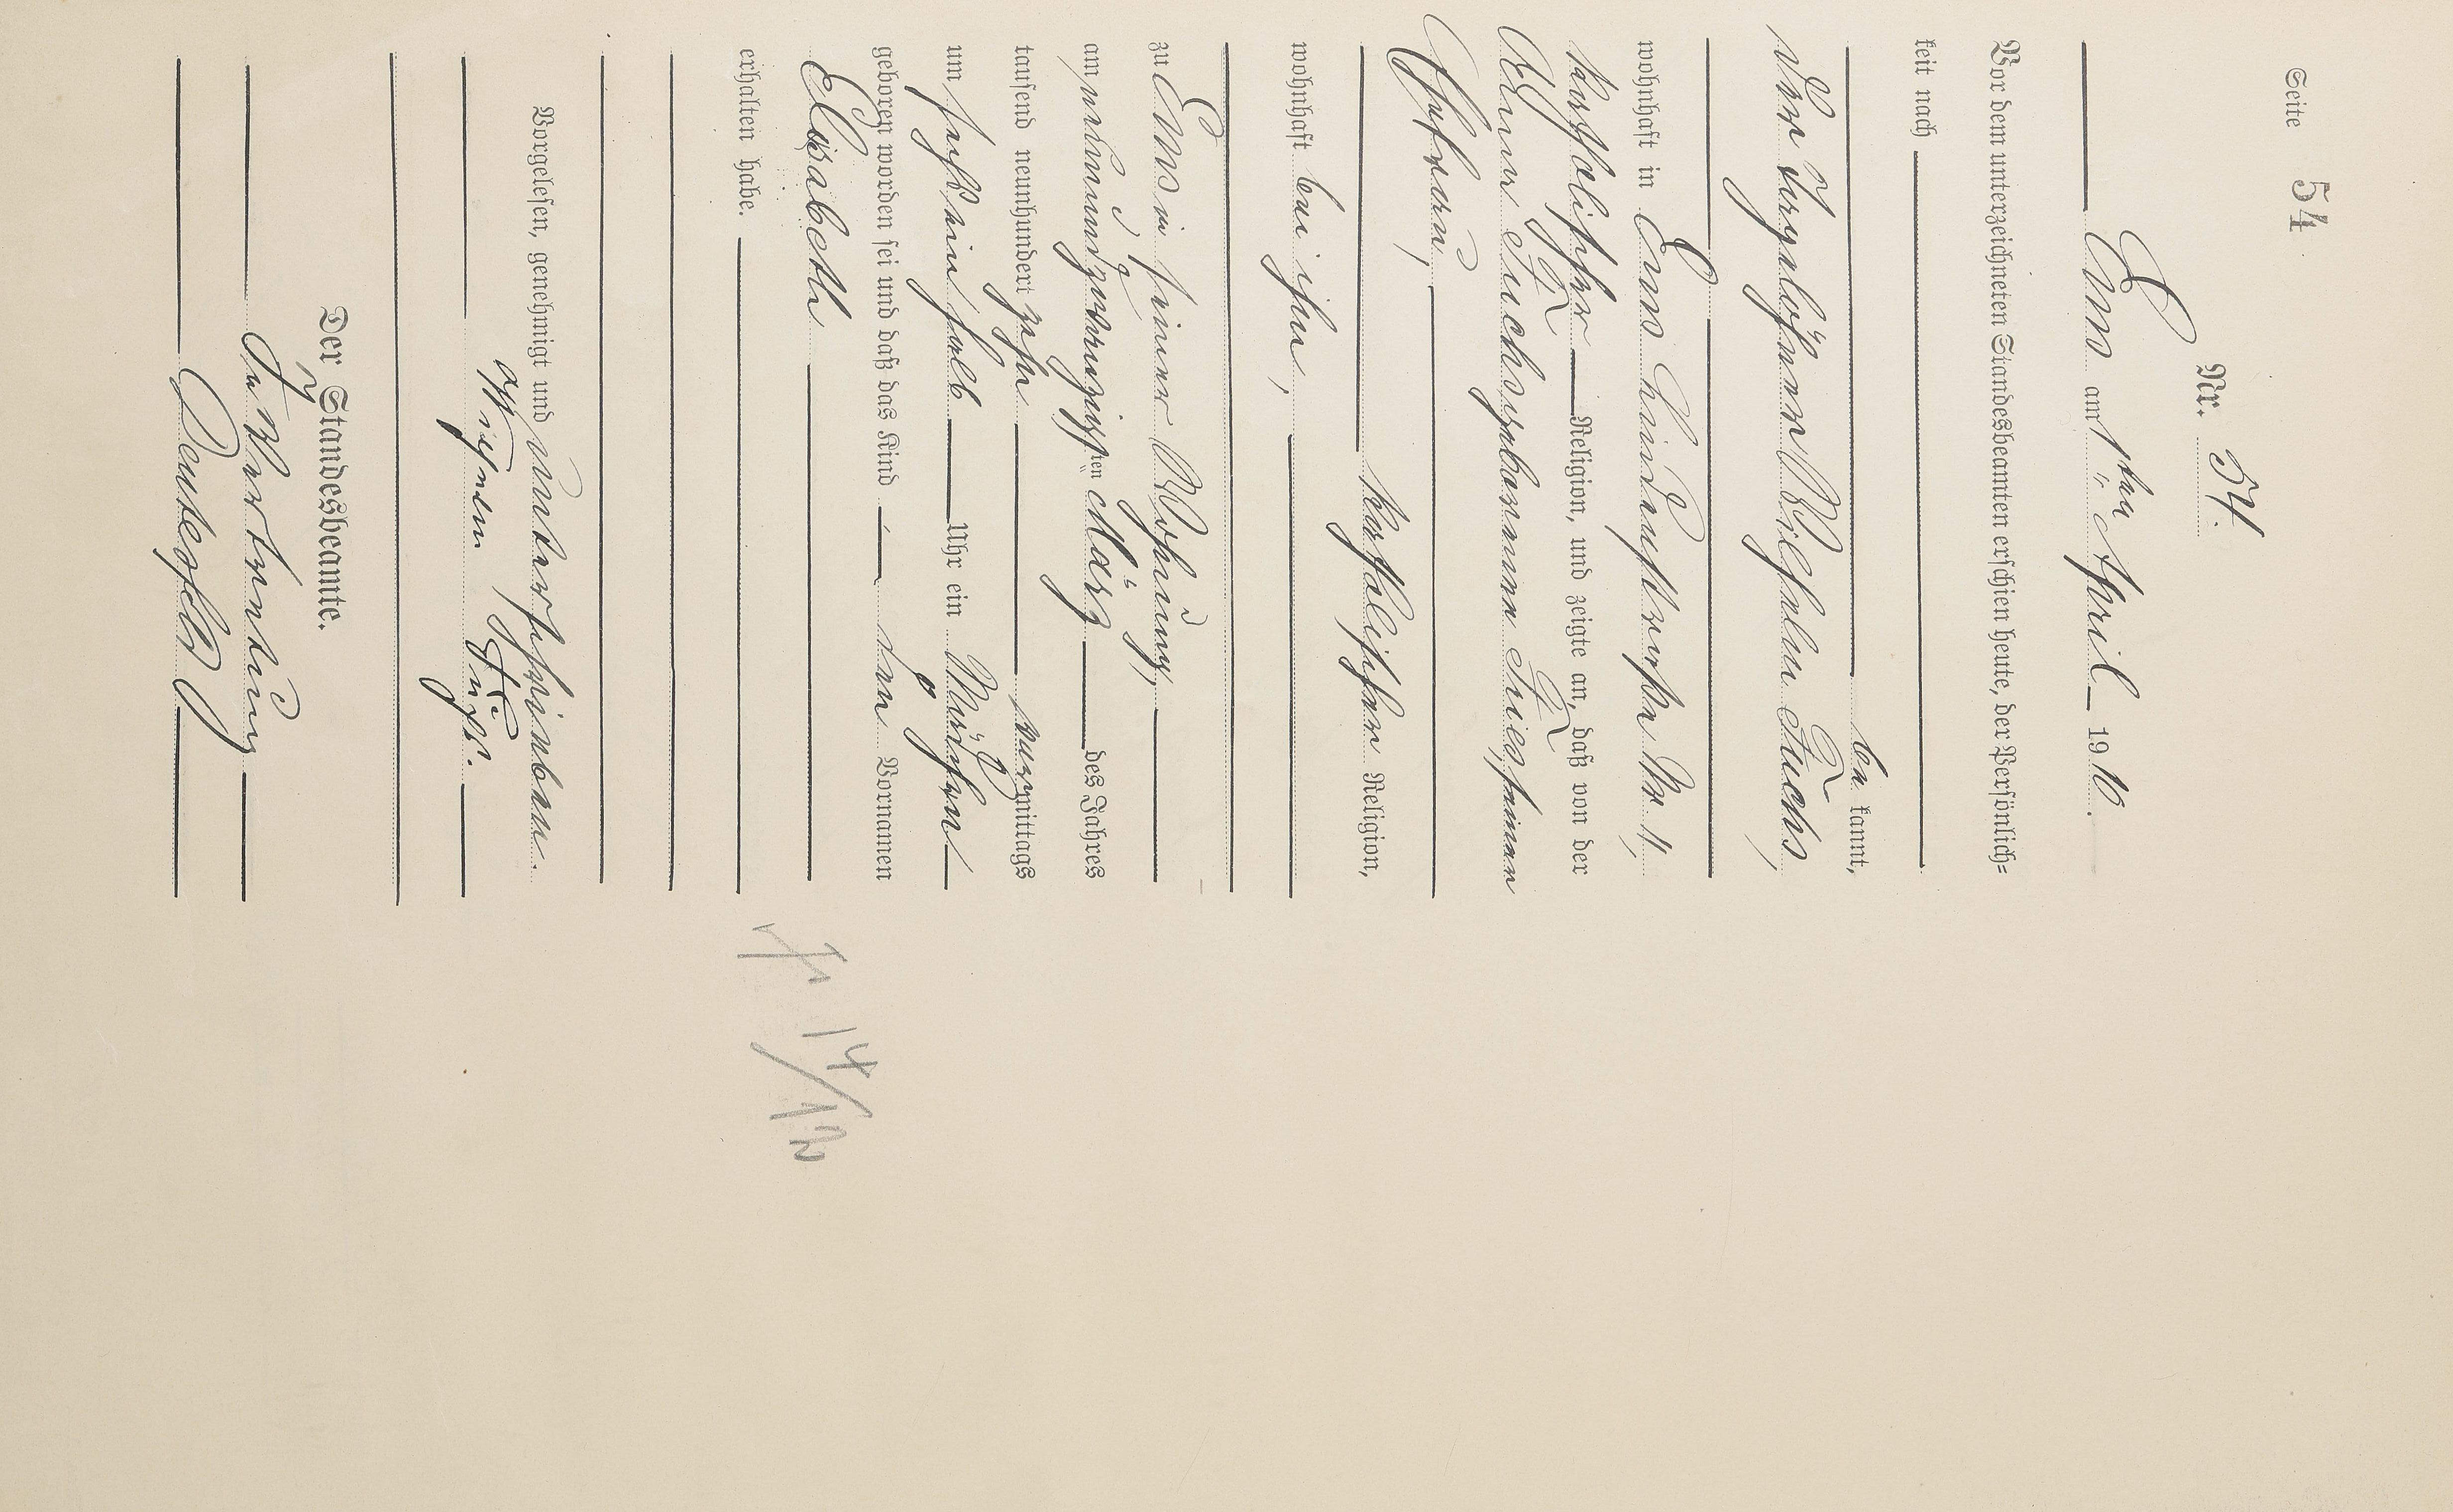 Seite 54
Nr. 54.
Ems am 1ten April 1910.
Vor dem unterzeichneten Standesbeamten erschien heute, der Persönlich-
keit nach
be kannt,
der Tagelöhner Wilhelm Fuchs,
wohnhaft in Ems, Lindenstraße Nr.
katholischer Religion, und zeigte an, daß von der
Anna Fuchs geborenen seiner
Ehefrau,
katholischer Religion,
wohnhaft bei ihm,
zu Ems in seiner Wohnung,
am neunundzwanzigsten März des Jahres
tausend neunhundert zehn vormittags
um sechs einhalb Uhr ein Mädchen
geboren worden sei und daß das Kind den Vornamen
Elisabeth
erhalten habe.
Vorgelesen, genehmigt und unterschrieben.
Wilhelm Fuchs.
Der Standesbeamte.
In Vertretung
14/12